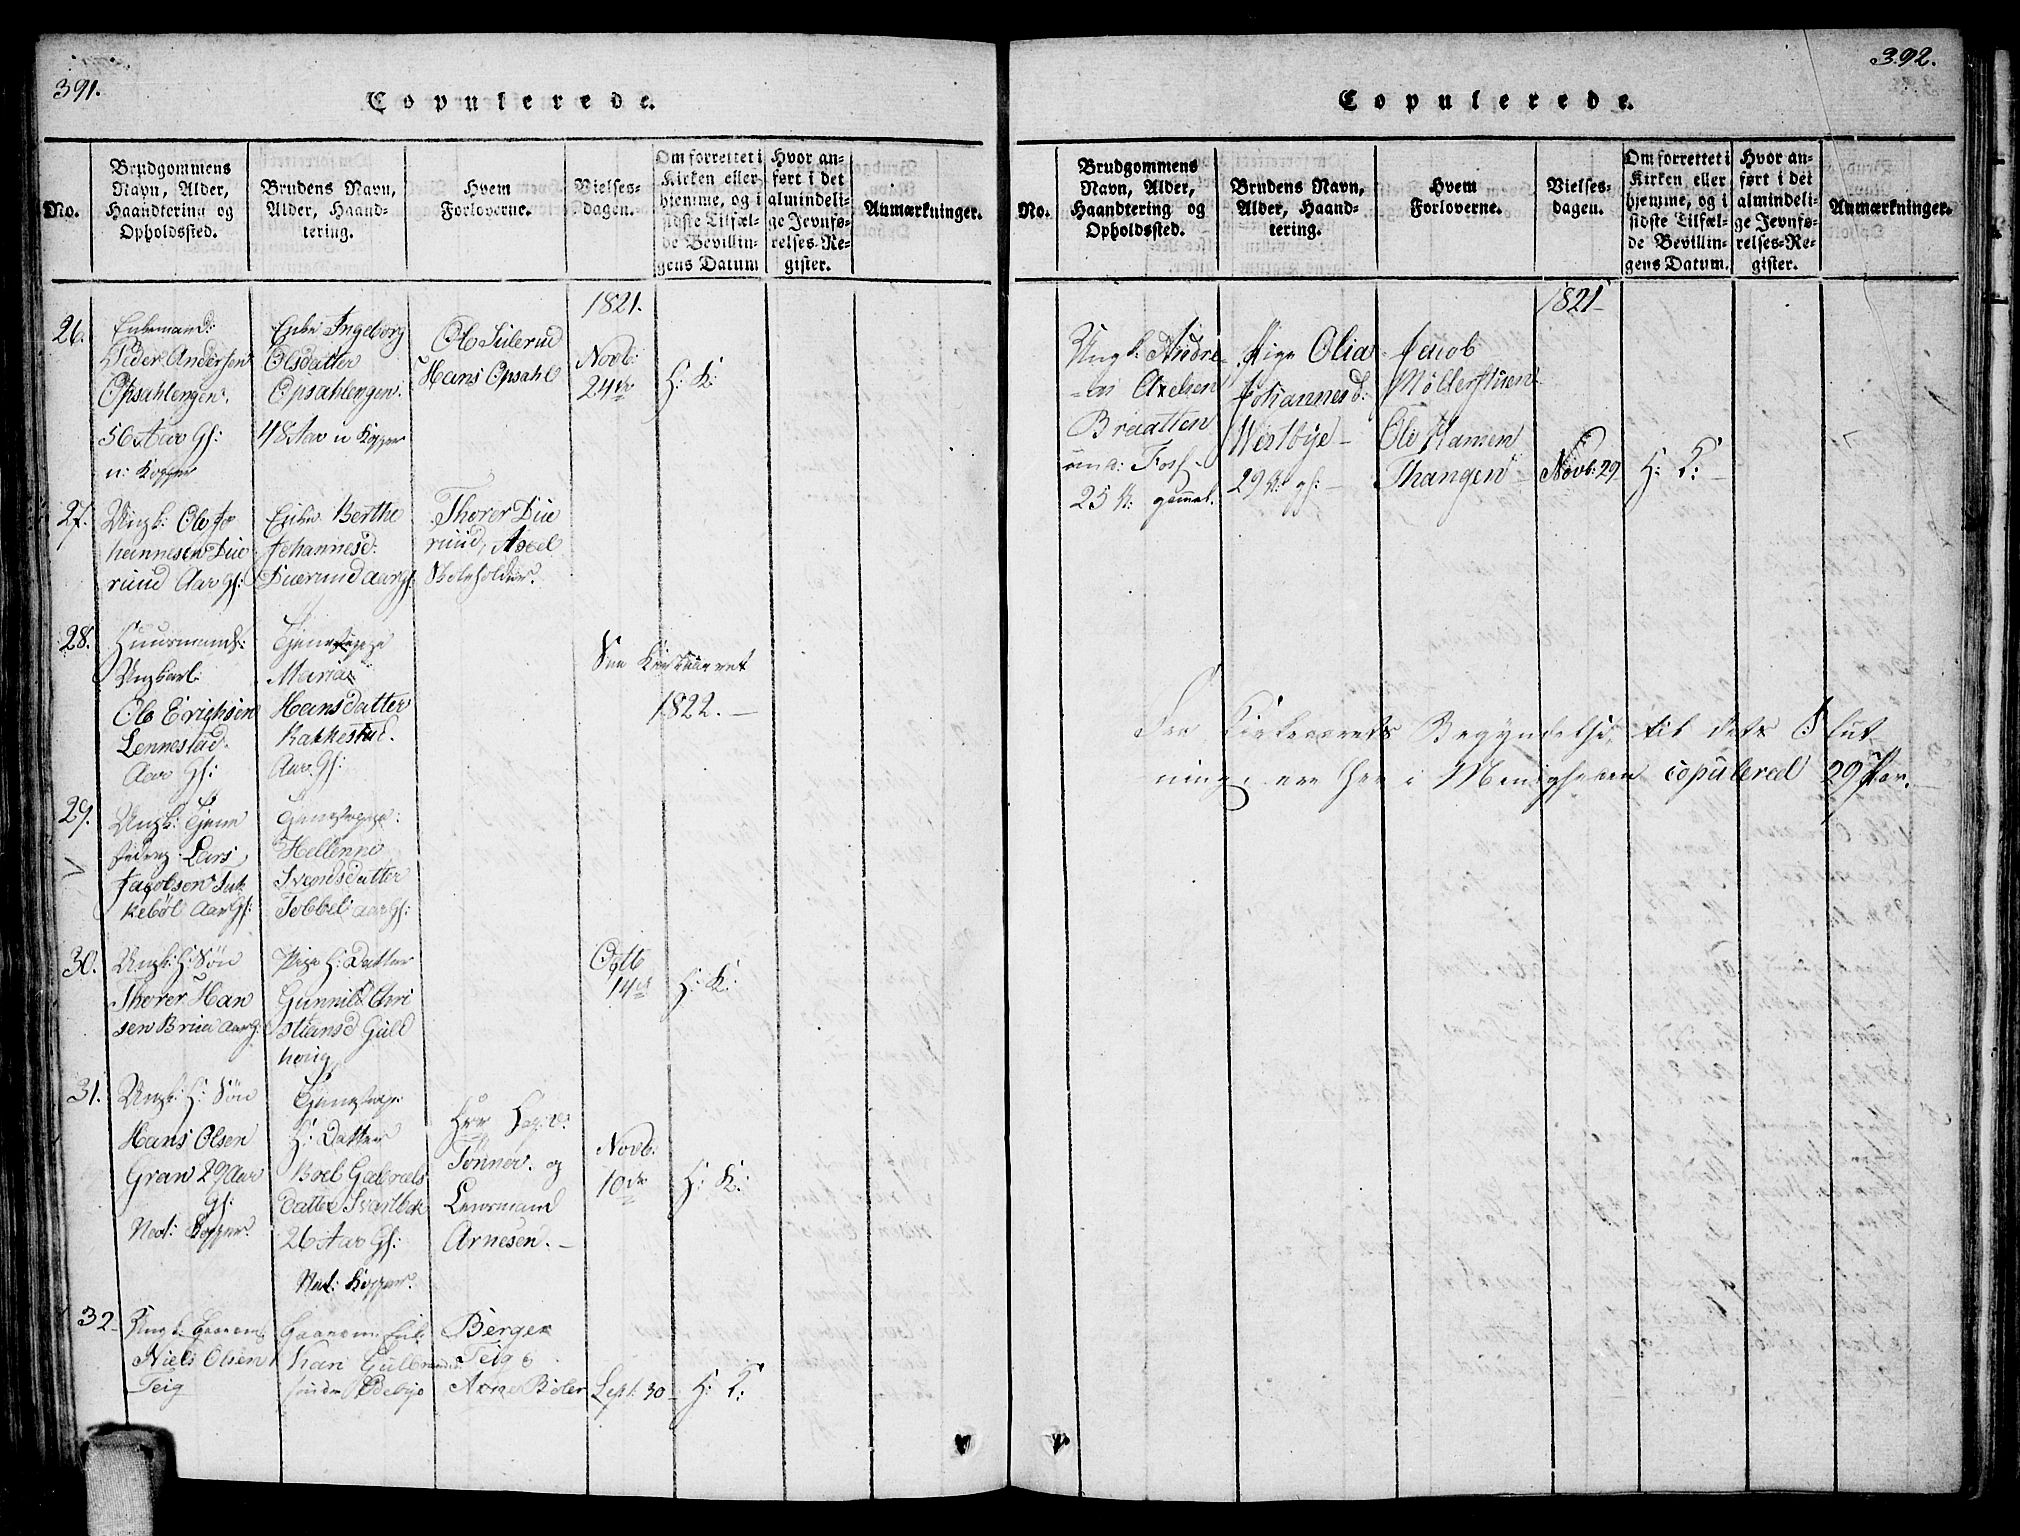 391.
Copulerede.
No.
Brudgommens
Navn, Alder,
Haandtering og
Opholdssted.
Brudens Navn,
Alder, Haand-
tering.
Hvem
Forloverne.
Vielses-
dagen.
Om forrettet i
Kirken eller
hjemme, og i
sidste Tilfæl-
de Bevillin-
gens Datum
Hvor an-
ført i det
almindeli-
ge Jevnfø-
relses-Re-
gister.
Anmærkninger.
1821.
26.
Enkemand:
Peder Andersen
Opsahlengen.
56 Aar Gl:
n: Kopper
Enke Ingeborg
Olsdatter
Opsahlengen.
48 Aar n Kopper
Ole Julerud
Hans Opsahl
Novb:
24de
H: K:
27.
Ungk: Ole Jo
hannesen Due
rud Aar Gl:
Enke Berthe
Johannesd:
Duerud Aar Gl:
Thorer Due
rud, Axel
Skoleholder.
28.
Huusmand:
Ungkarl:
Ole Erichsen
Lennestad.
Aar Gl:
Tjenestepige
Maria
Hansdatter
Rakkestad.
Aar. Gl:
See Kirkeaaret
1822. —
29.
Ungk: Tjene
Lars
Jacobsen
kebøl Aar Gl:
Tjenestepige:
Hellenne
Svendsdatter
Tobbel Aar Gl:
30.
Ungk: H: Søn
Thorer Han
sen Aar G:
Pige H: Datter
Gunnild Chri
stiansd Guld
houg
Octb
14de
H: K:
31.
Ungk: H: Søn
Hans Olsen
Gran 29 Aar
Gl:
Nat: Kopper.
Tjenestepige
H: Datter
Boel Gabriels
datter
26 Aar Gl:
Nat: Kopper.
Herr
Tønner. og
Lensmand
Arnesen. —
Novb.
10de
H: K:
32.
Ungk. Gaarm
Niels Olsen
Teig
Gaarm: Enke
Kari Gulbrands
Edebye
Berger
Teig &
Arne Bøler
Sept. 30
H: K:
392.
Copulerede.
No.
Brudgommens
Navn, Alder,
Haandtering og
Opholdssted.
Brudens Navn,
Alder, Haand-
tering.
Hvem
Forloverne.
Vielses-
dagen.
Om forrettet i
Kirken eller
hjemme, og i
sidste Tilfæl-
de Bevillin-
gens Datum.
Hvor an-
ført i det
almindeli-
ge Jevnfø-
relses-Re-
gister.
Anmærkninger.
1821
Ungk: Andre
as Axelsen
Braatten
25 A: gammel.
Pige Olia
Johannesd:
Westbye —
29 A: gl: —
Jacob
Møllerstuen
Ole Hansen
Thangen
Novb: 29
H: K:
Fra Kirkeaarets Begyndelse til dets Slut
ning ere her i Menigheden copulered 29 Par.